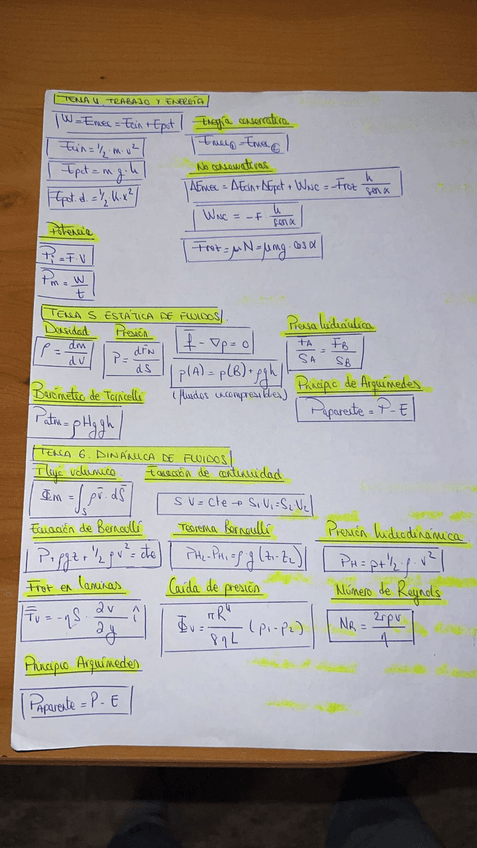 TEMA 4. TRABAJO Y ENERGÍA
W = Emec = Ecin + Epot
Ecin = 1/2 · m · v²
Epot = m · g · h
Epot. d. = 1/2 k · x²
Energía conservativa
Emec① = Emec②
No conservativas
ΔEmec = ΔEcin + ΔEpot + WNC = -Frot h/senα
WNC = -F h/senα
Frot = μN = μmg · cosα
Potencia
Pi = F · V
Pm = W/t
TEMA 5. ESTÁTICA DE FLUIDOS
Densidad
ρ = dm/dV
Presión
P = dFN/dS
f̄ - ∇p = 0
p(A) = p(B) + ρgh
(fluidos incompresibles)
Prensa hidráulica
FA/SA = FB/SB
Barómetro de Torricelli
Patm = ρHg g h
Principio de Arquímedes
Paparente = P - E
TEMA 6. DINÁMICA DE FLUIDOS
Flujo volúmico
Φm = ∫s ρv̄ · dS̄
Ecuación de continuidad
S V = cte → S1V1 = S2V2
Ecuación de Bernoulli
P + ρgz + 1/2 ρv² = cte
Teorema Bernoulli
PH2 - PH1 = ρ · g (z1 - z2)
Presión hidrodinámica
PH = p + 1/2 · ρ · v²
Frot en laminas
Fv = -ηS · ∂v/∂y î
Caída de presión
Φv = πR⁴/8ηL (p1 - p2)
Número de Reynols
NR = 2rρv/η
Principio Arquímedes
PAparente = P - E